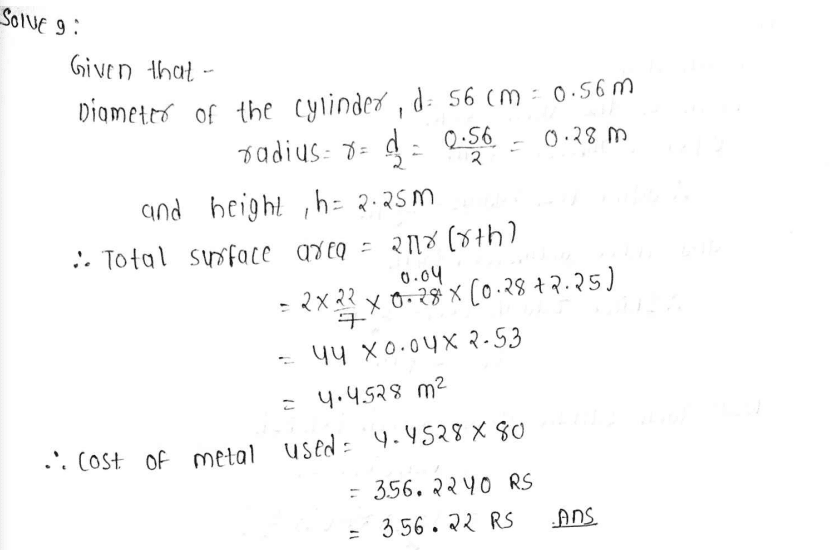 Solve 9:
Given that -
Diameter of the cylinder, d= 56 cm = 0.56 m
radius= r= d/2 = 0.56/2 = 0.28 m
and height, h= 2.25m
∴ Total surface area = 2πr (r+h)
= 2 × 22/7 × 0.28 × (0.28 + 2.25)
0.04
= 44 × 0.04 × 2.53
= 4.4528 m²
∴ Cost of metal used = 4.4528 × 80
= 356.2240 RS
= 356.22 RS Ans